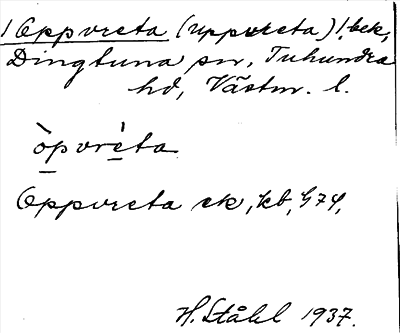 1 Oppvreta (uppvreta) 1, bek,
Dingtuna sn, Tuhundra
hd, Västm. l.
òpvrèta
Oppvreta ek, kb, G74,
H. Ståhl 1937.